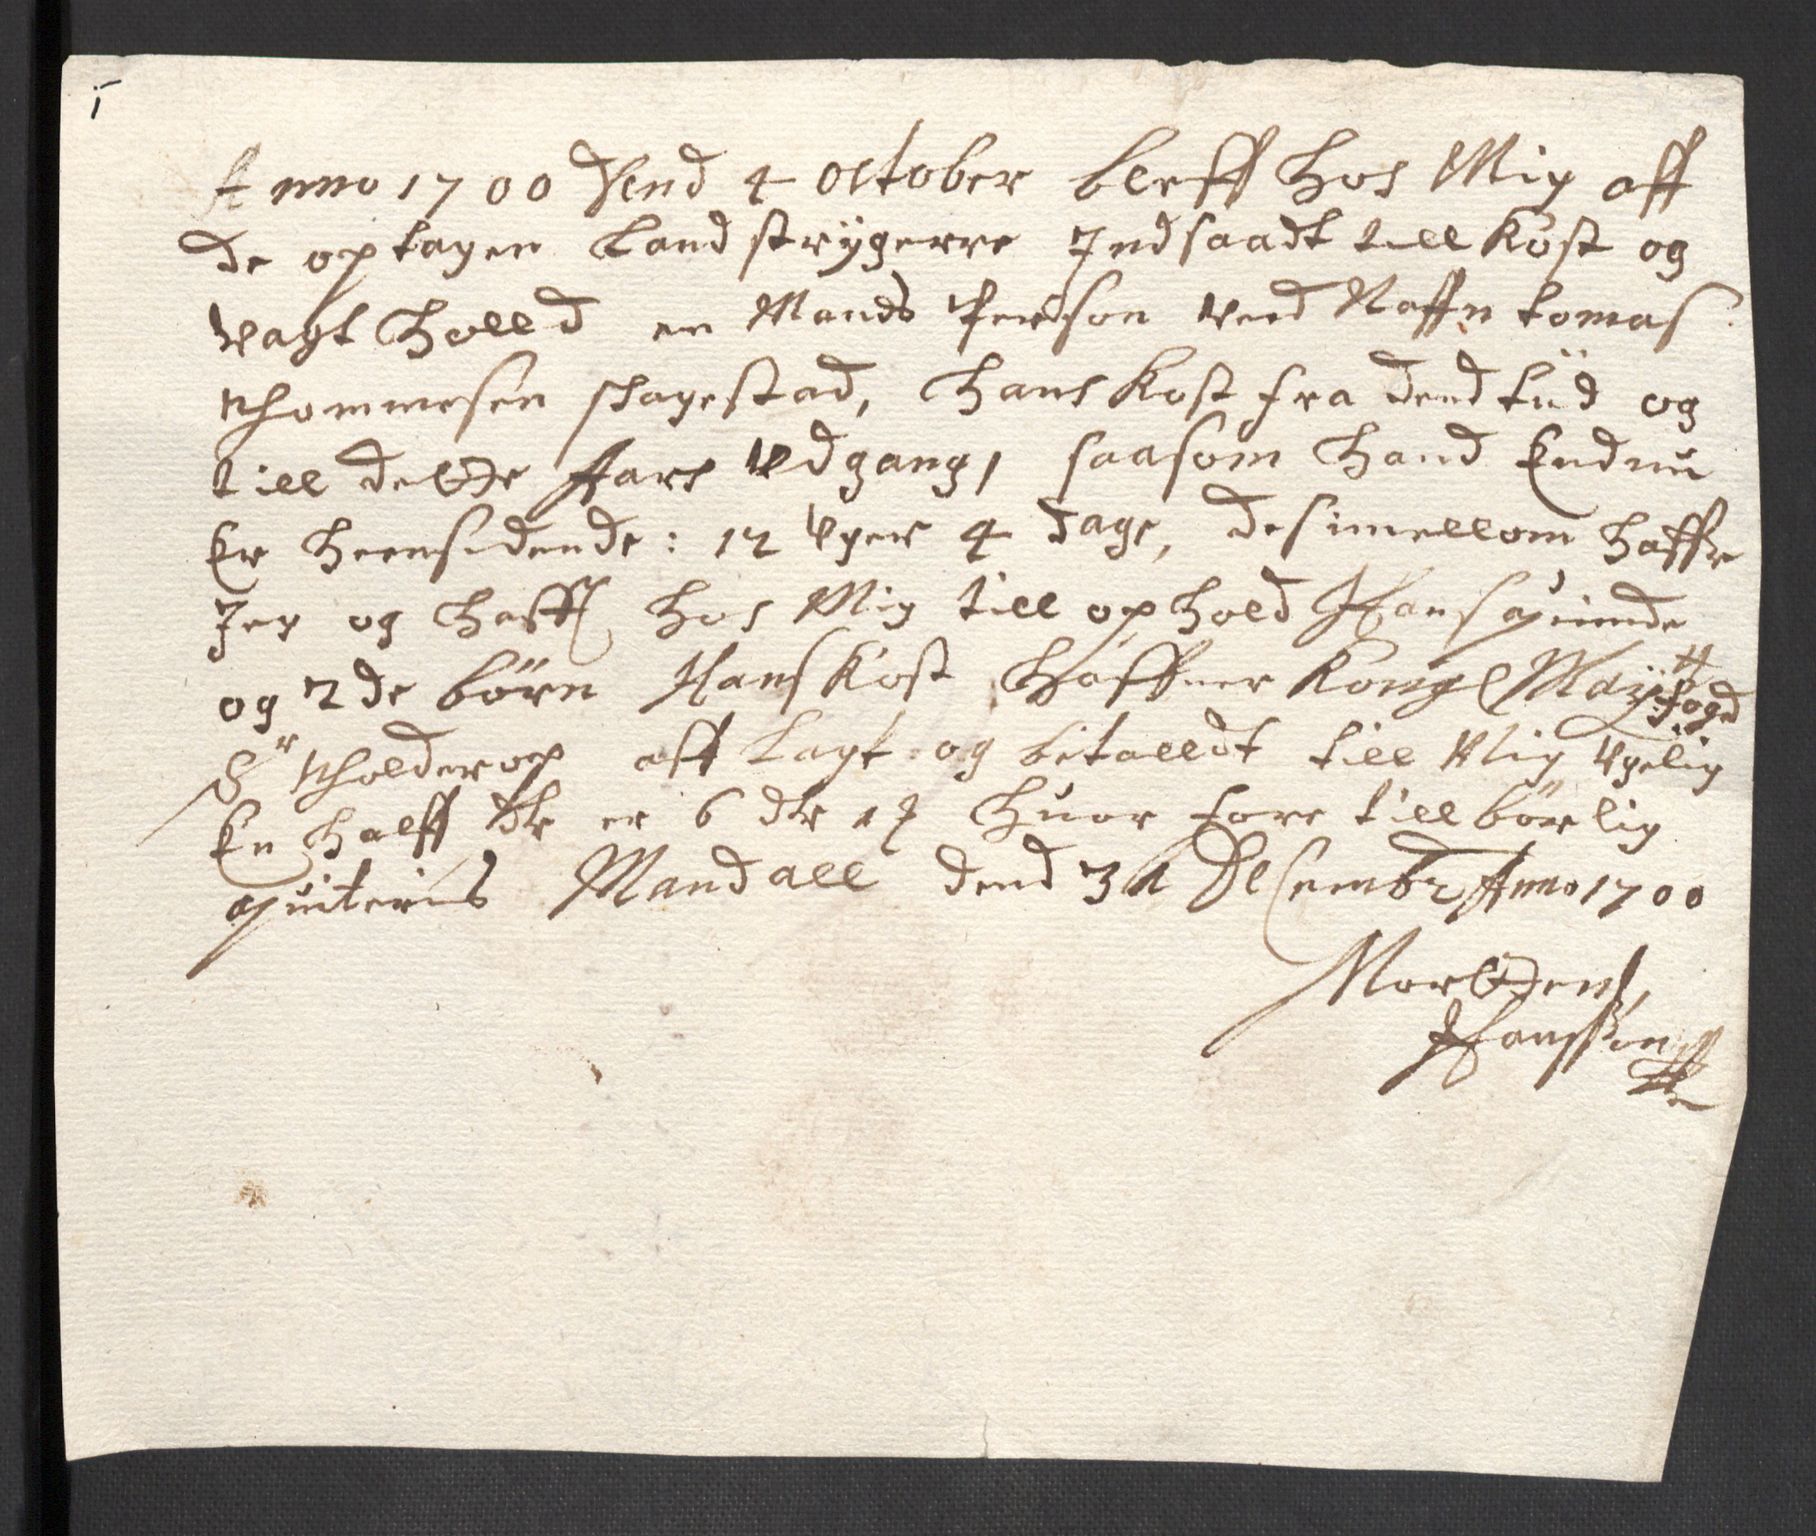 1
Anno 1700 dend 4 october bleff hos Mig aff
de optagen Landstrÿgerre Indsaadt till Kost og
vagt holld en Mands Person ved Naffn tomas
thommesen stagestad, hans Kost fra dend tiid og
till dette Aars Udgang, saasom hand Endnu
Er heensidende: 12 Uger 4 dage, desimellom haffr
Jeg og hafft hos Mig till ophold Hans quinde
og 2de børn Hans Kost haffuer Kongl Maÿts fogd
Sr tholderop aff Lagt og bitalldt till Mig Ugelig
En halff dlr er 6 dlr 1 huor fore tillbørlig
quiteris Mandall dend 31 Decembr Anno 1700
Mortden
Hanssen